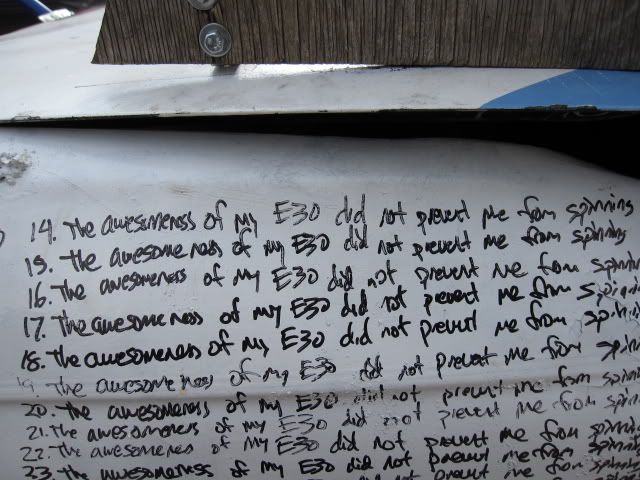 14. The awesomeness of my E30 did not prevent me from spinning
15. The awesomeness of my E30 did not prevent me from spinning
16. The awesomeness of my E30 did not prevent me from spinnin
17. The awesomeness of my E30 did not prevent me from spinni
18. The awesomeness of my E30 did not prevent me from spinni
19. The awesomeness of my E30 did not prevent me from spinn
20. The awesomeness of my E30 did not prevent me from spinni
21. The awesomeness of my E30 did not prevent me from spinn
22. The awesomeness of my E30 did not prevent me from spinning
23. The awesomeness of my E30 did not prevent me from spinn